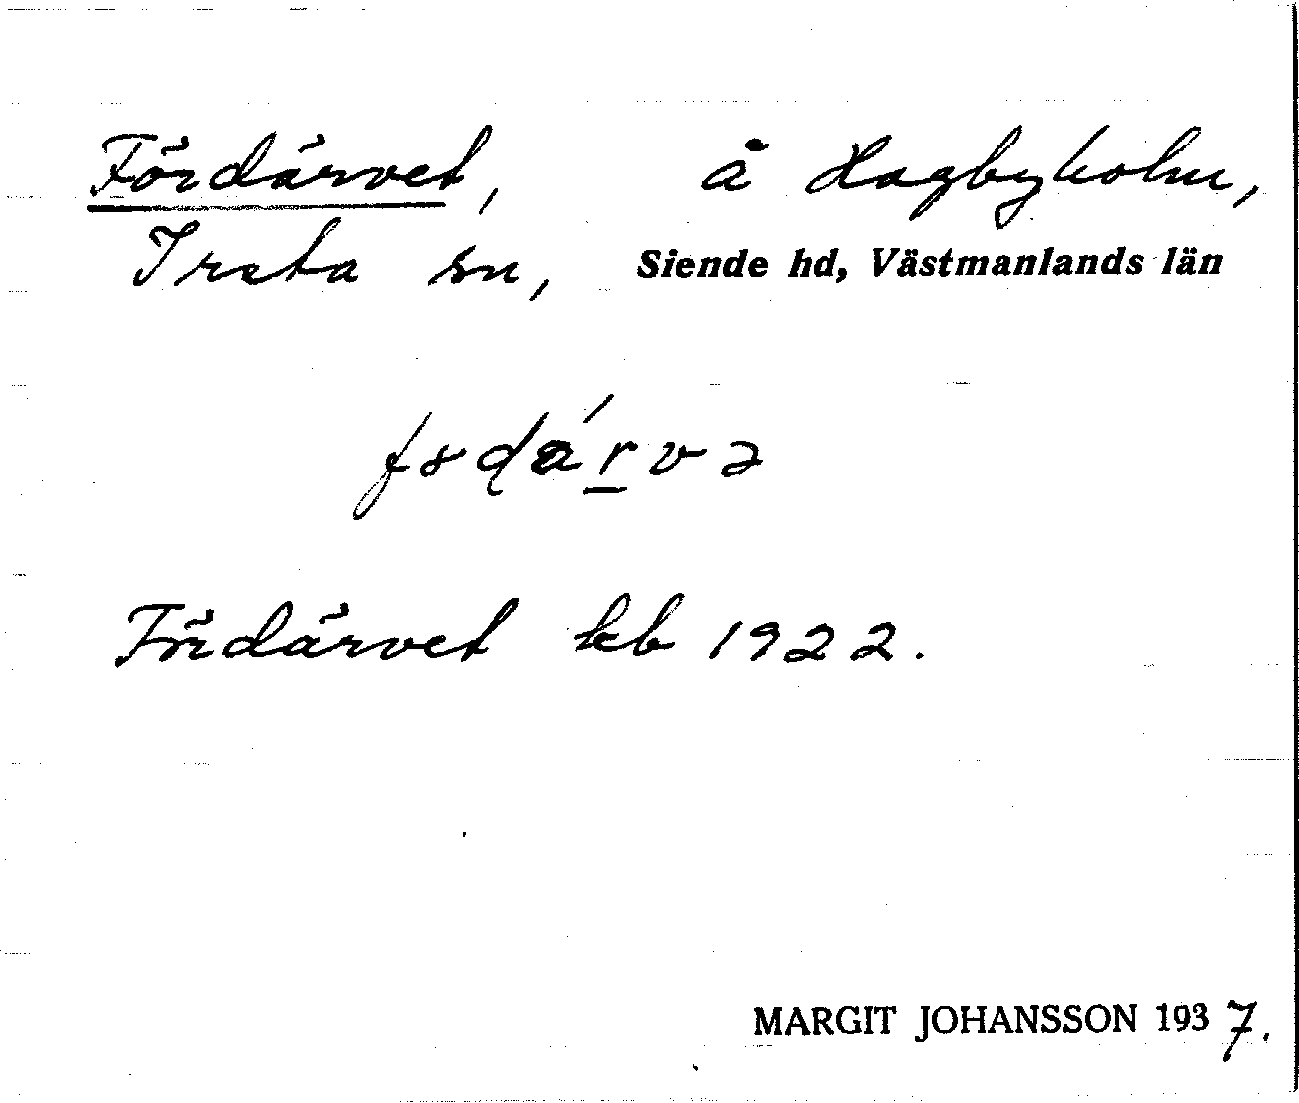 Fördärvet, å Hagbyholm,
Irsta sn, Siende hd, Västmanlands län
Fördärvet kb 1922.
MARGIT JOHANSSON 1937.